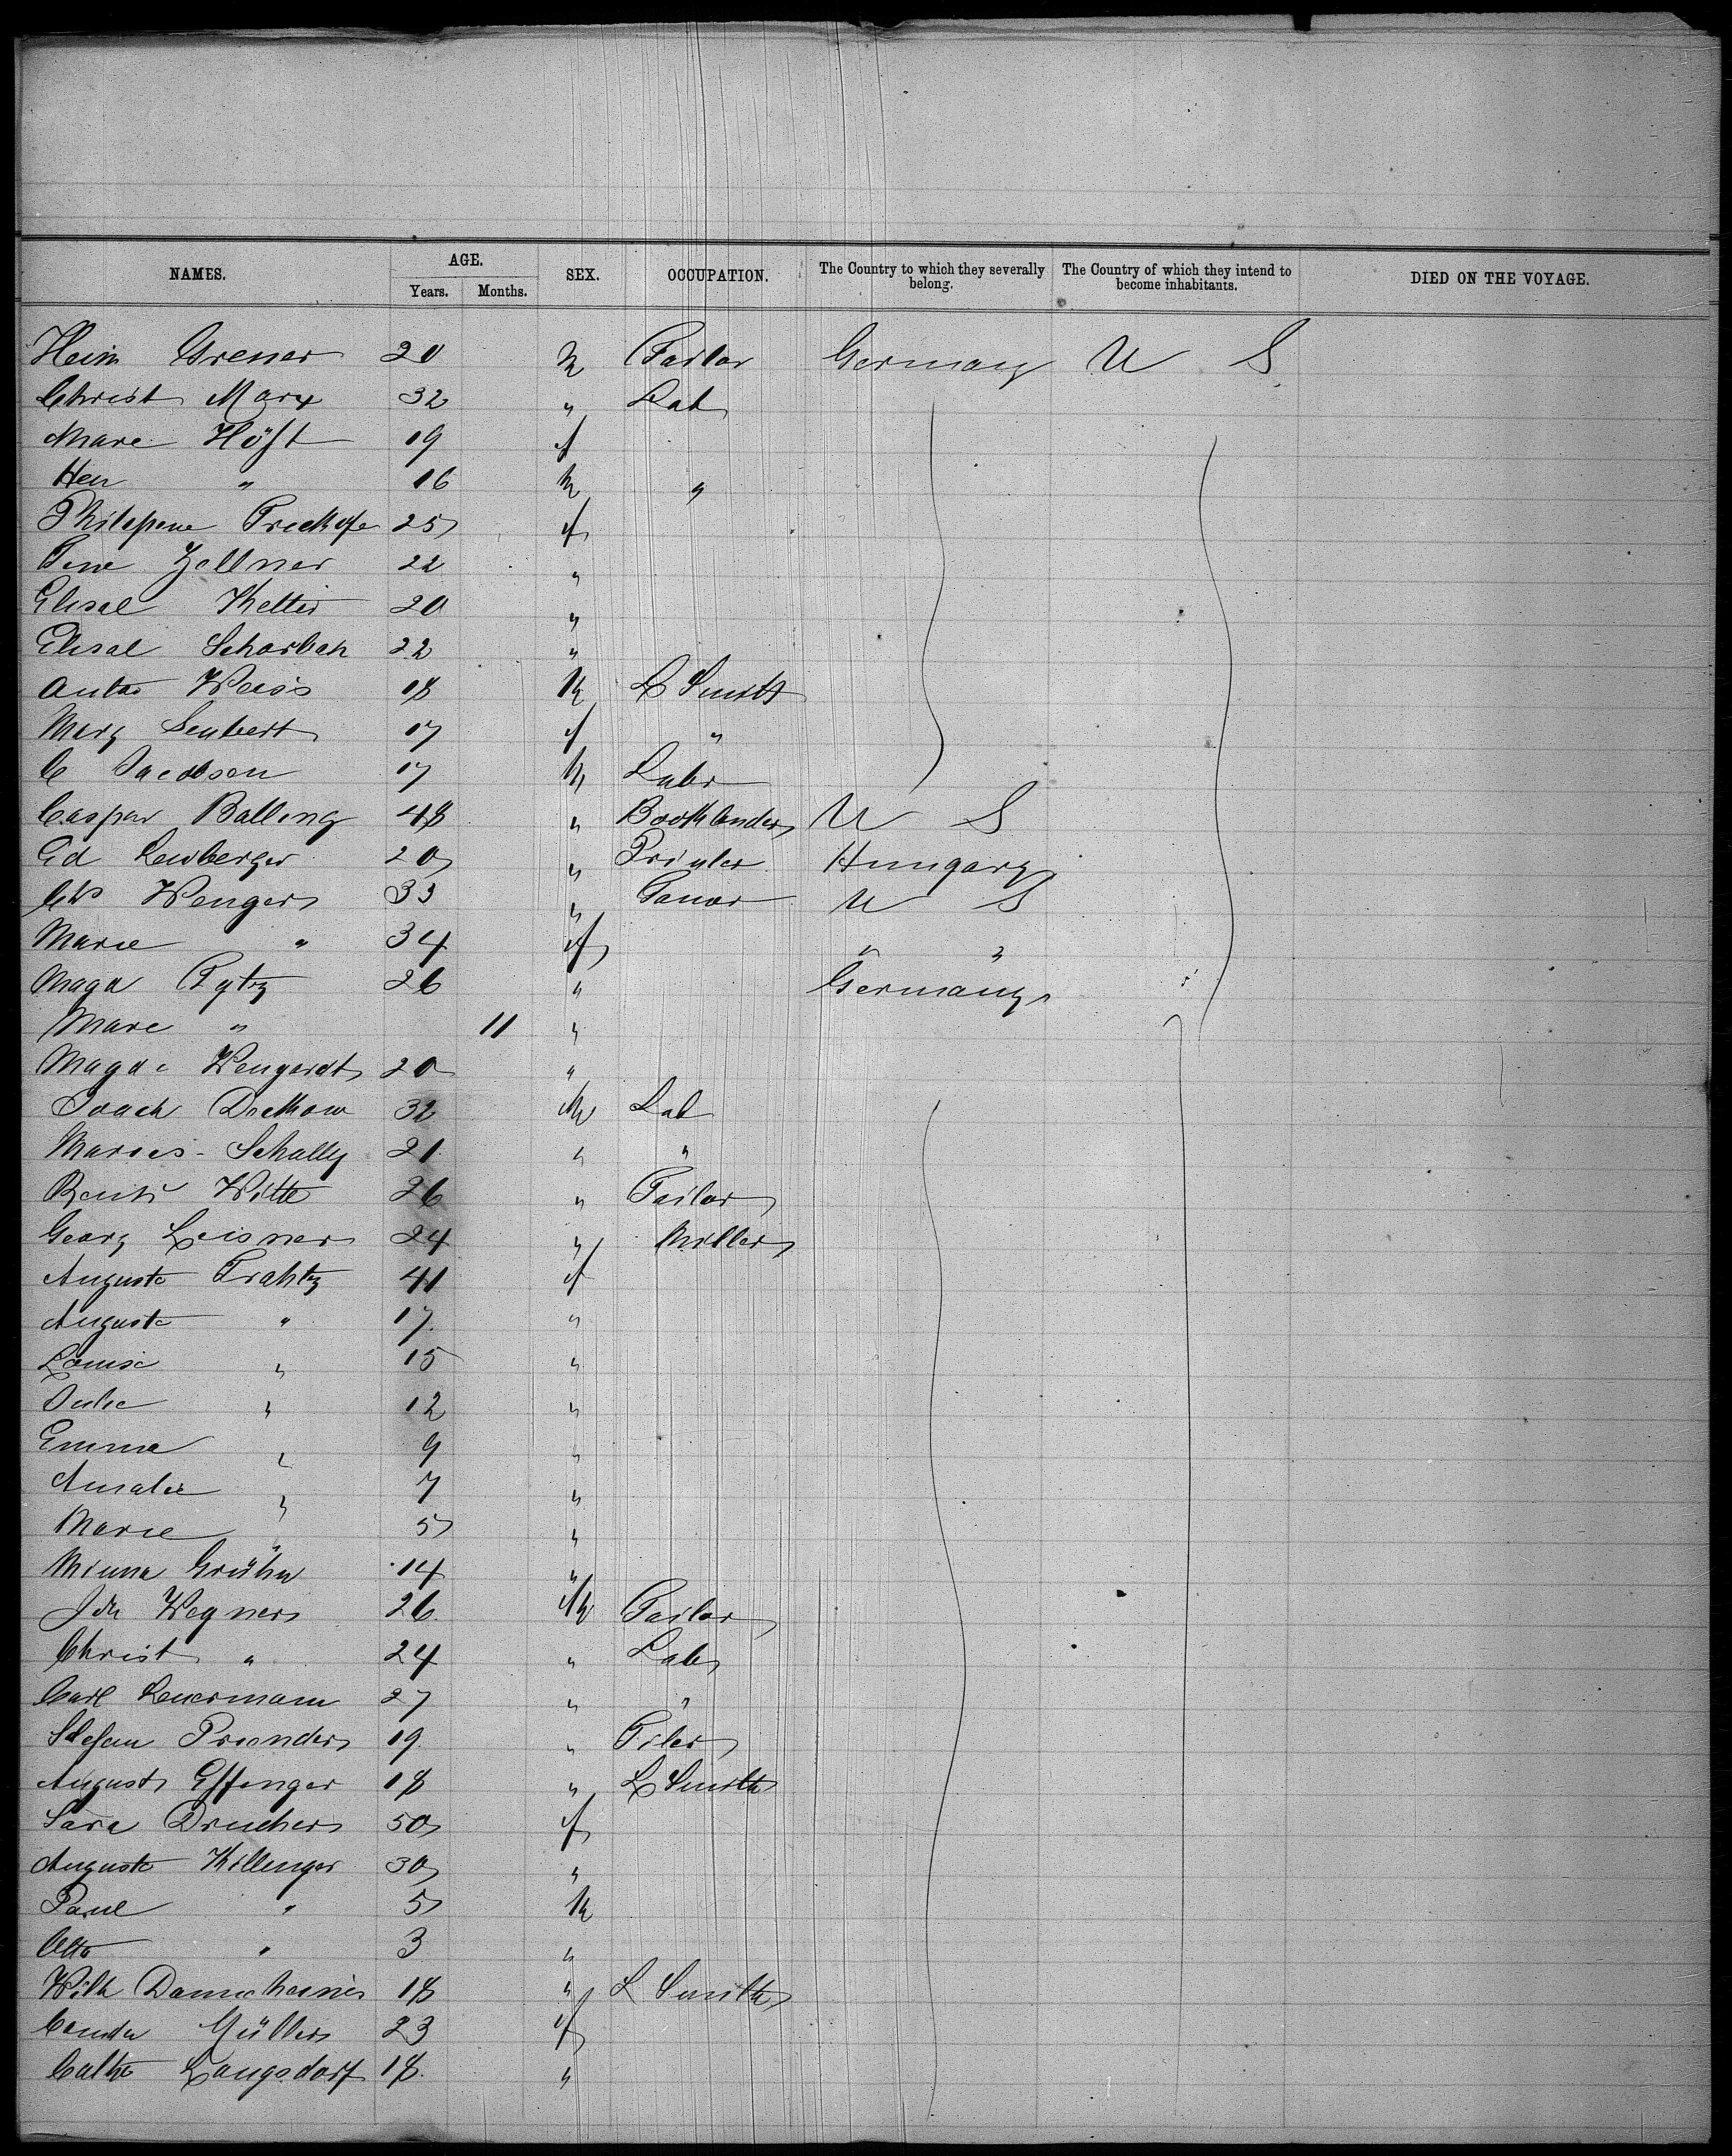 NAMES. AGE. SEX. OCCUPATION. The Country to which they severally belong. The Country of which they intend to become inhabitants. DIED ON THE VOYAGE.
Years. Months.
Hein Grener 20 m Tailor Germany U S
Christ Marx 32 " Lab
Marie Höft 19 f
Hen " 16 m "
25 f
Zellner 22 "
Elisal Ketter 20 "
Elisal Scharbah 22 "
Anton Weiss 18 m L Smith
Marg Seubert 17 f "
C Jacobson 17 m Labr
Caspar Balling 48 " Bookbinder U S
Ed Leuberger 20 " Printer Hungary
Chs Wenger 33 " Tanner U S
Marie " 34 f " "
Magd 26 " Germany
Marie " 11 "
Magde Wengardt 20 "
Joach Dreckow 32 m Lab
Schally 21 " "
Witte 26 " Tailor
Georg Leisner 24 " Miller
Auguste Trahtz 41 f
Auguste " 17 "
Louise " 15 "
Julie " 12 "
Emma " 9 "
Amalie " 7 "
Marie " 5 "
Minna Grühn 14 "
Joh Wegner 26 m Tailor
Christ " 24 " Lab
Carl 27 " "
Stefan 19 " Tiler
August Effenger 18 " L Smith
Sara Drucher 50 f
Auguste Killinger 30 "
Paul " 5 m
Otto " 3 "
Wilh 18 " L Smith
Müller 23 f
Cathe Langsdorf 18 "